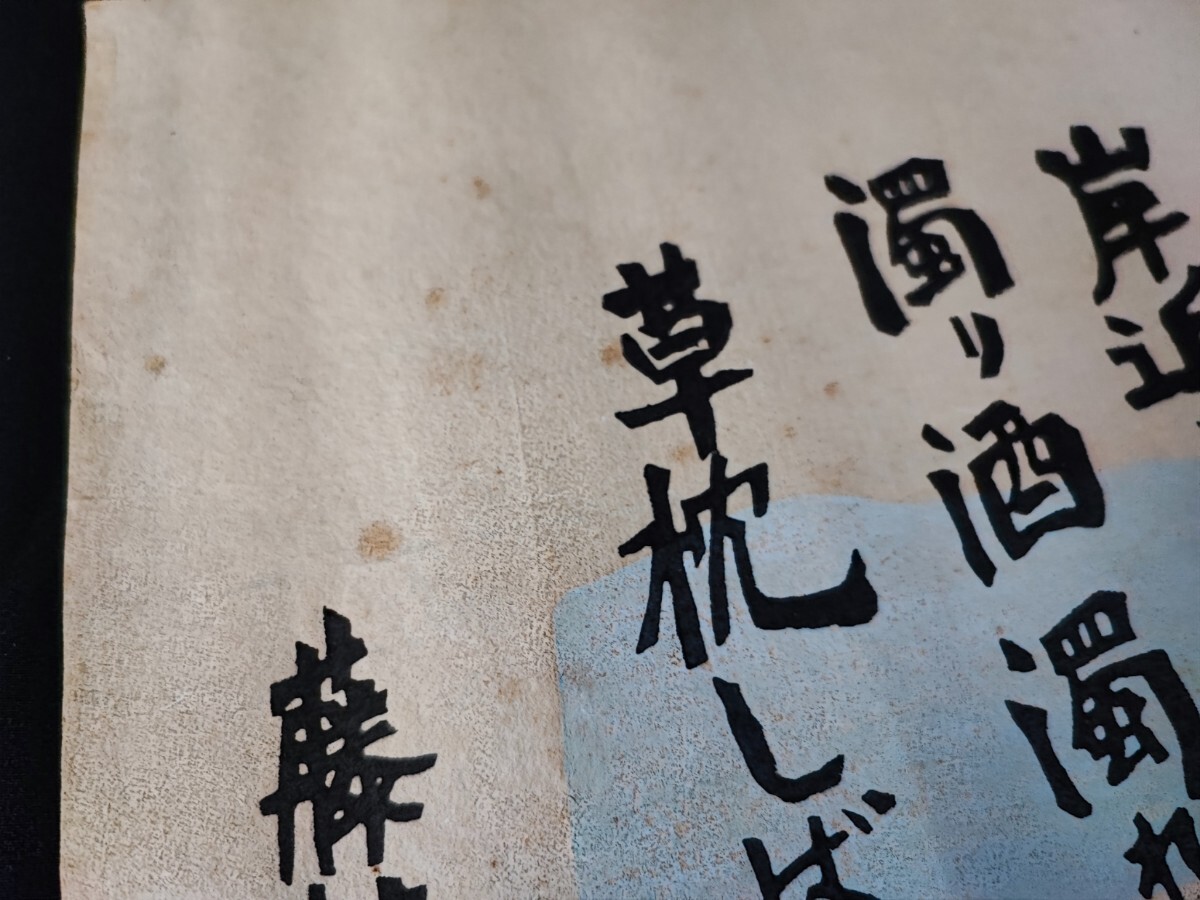 岸近
濁り酒濁れ
草枕しば
藤